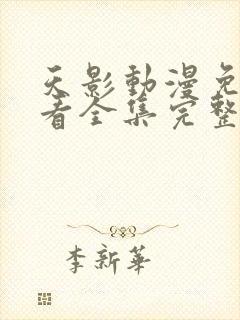 天影動漫免
看全集完整
李新華